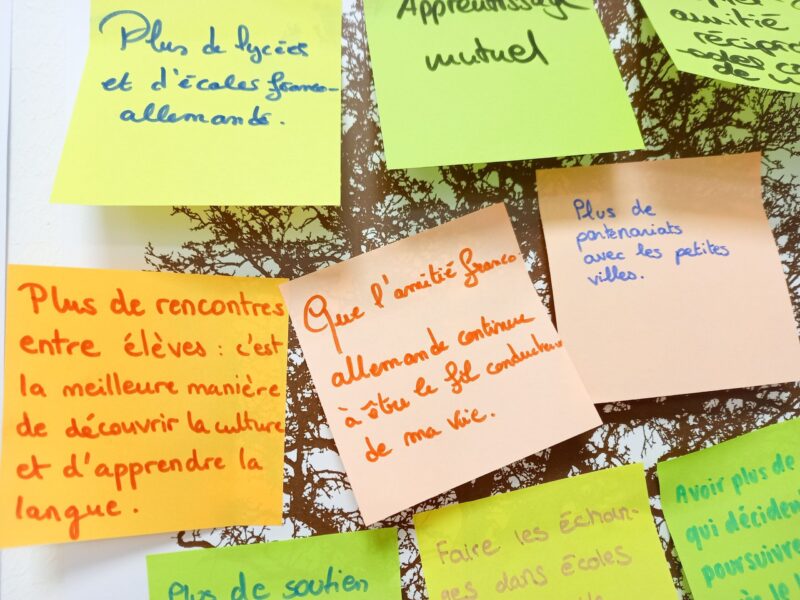 Plus de lycées
et d'écoles franco-
allemands.
Apprentissage
mutuel
amitié
Plus de
partenariats
avec les petites
villes.
Plus de rencontres
entre élèves : c'est
la meilleure manière
de découvrir la culture
et d'apprendre la
langue.
Que l'amitié franco
allemande continue
à être le fil conducteur
de ma vie.
Plus de soutien
Faire les échan-
ges dans écoles
Avoir plus de
qui décident
poursuivre